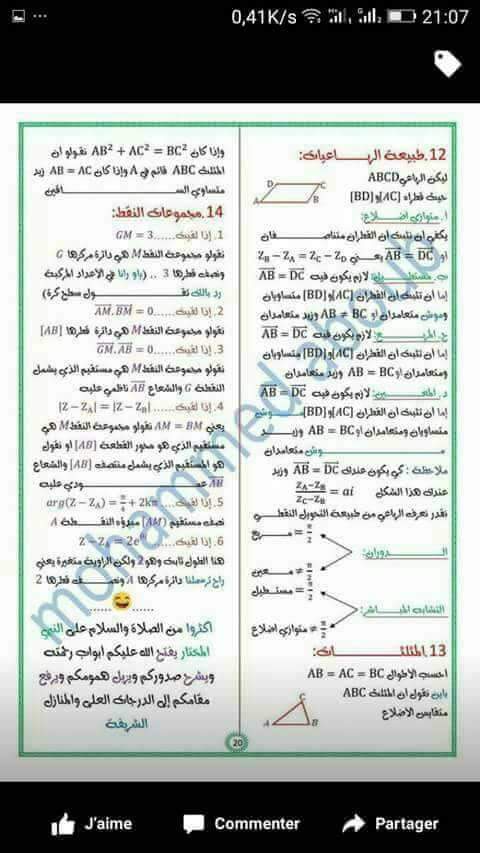 0,41K/s 21:07
12.طبيعة الرباعيات:
ليكن الرباعي ABCD
حيث قطراه [AC] و[BD]
D C
A B
أ. متوازي اضلاع:
يكفي ان نثبت ان القطران متناصفان
او AB = DC يعني Z_B − Z_A = Z_C − Z_D
ب. مستطيل: لازم يكون فيه AB = DC
إما ان نثبت ان القطران [AC] و[BD] متساويان
وموش متعامدان او AB ≠ BC وزيد متعامدان
ج. المربع: لازم يكون فيه AB = DC
إما ان نثبت ان القطران [AC] و[BD] متساويان
ومتعامدان او AB = BC وزيد متعامدان
د. المعين: لازم يكون فيه AB = DC
إما ان نثبت ان القطران [AC] و[BD] موش
متساويان ومتعامدان او AB = BC وزيد
موش متعامدان
ملاحظة: كي يكون عندك AB = DC وزيد
عندك هذا الشكل (Z_A−Z_B)/(Z_C−Z_B) = ai
نقدر نعرف الرباعي من طبيعة التحويل النقطي
= π/2 مربع
الدوران:
≠ π/2 معين
= π/2 مستطيل
التشابه المباشر:
≠ π/2 متوازي اضلاع
13.المثلثات:
احسب الاطوال AB = AC = BC
باين نقول ان المثلث ABC
متقايس الاضلاع
C
A B
وإذا كان AB² + AC² = BC² نقولو ان
المثلث ABC قائم في A وإذا كان AB = AC زيد
متساوي الساقين
14.مجموعات النقط:
1. إذا لقيت....GM = 3
نقولو مجموعة النقط M هي دائرة مركزها G
ونصف قطرها 3 .. (راو رانا في الاعداد المركبة
رد بالك تقول سطح كرة)
2. إذا لقيت.....AM.BM = 0
نقولو مجموعة النقط M هي دائرة قطرها [AB]
3. إذا لقيت.....GM.AB = 0
نقولو مجموعة النقط M هي مستقيم الذي يشمل
النقطة G والشعاع AB ناظمي عليه
4. إذا لقيت....|Z − Z_A| = |Z − Z_B|
يعني AM = BM نقولو مجموعة النقط M هي
مستقيم الذي هو محور القطعة [AB] او نقول
هو المستقيم الذي يشمل منتصف [AB] والشعاع
AB عمودي عليه
5. إذا لقيت...arg(Z − Z_A) = π/4 + 2kπ
نصف مستقيم [AM) مبدؤه النقطة A
6. إذا لقيت....Z − Z_A = 2e
هنا الطول ثابت وهو 2 ولكن الزاوية متغيرة يعني
راح ترسملنا دائرة مركزها A ونصف قطرها 2
......😅......
اكثروا من الصلاة والسلام على النبي
المختار يفتح الله عليكم ابواب رحمته
ويشرح صدوركم ويزيل همومكم ويرفع
مقامكم إلى الدرجات العلى والمنازل
الشريفة
20
mohammed aboub
J'aime Commenter Partager